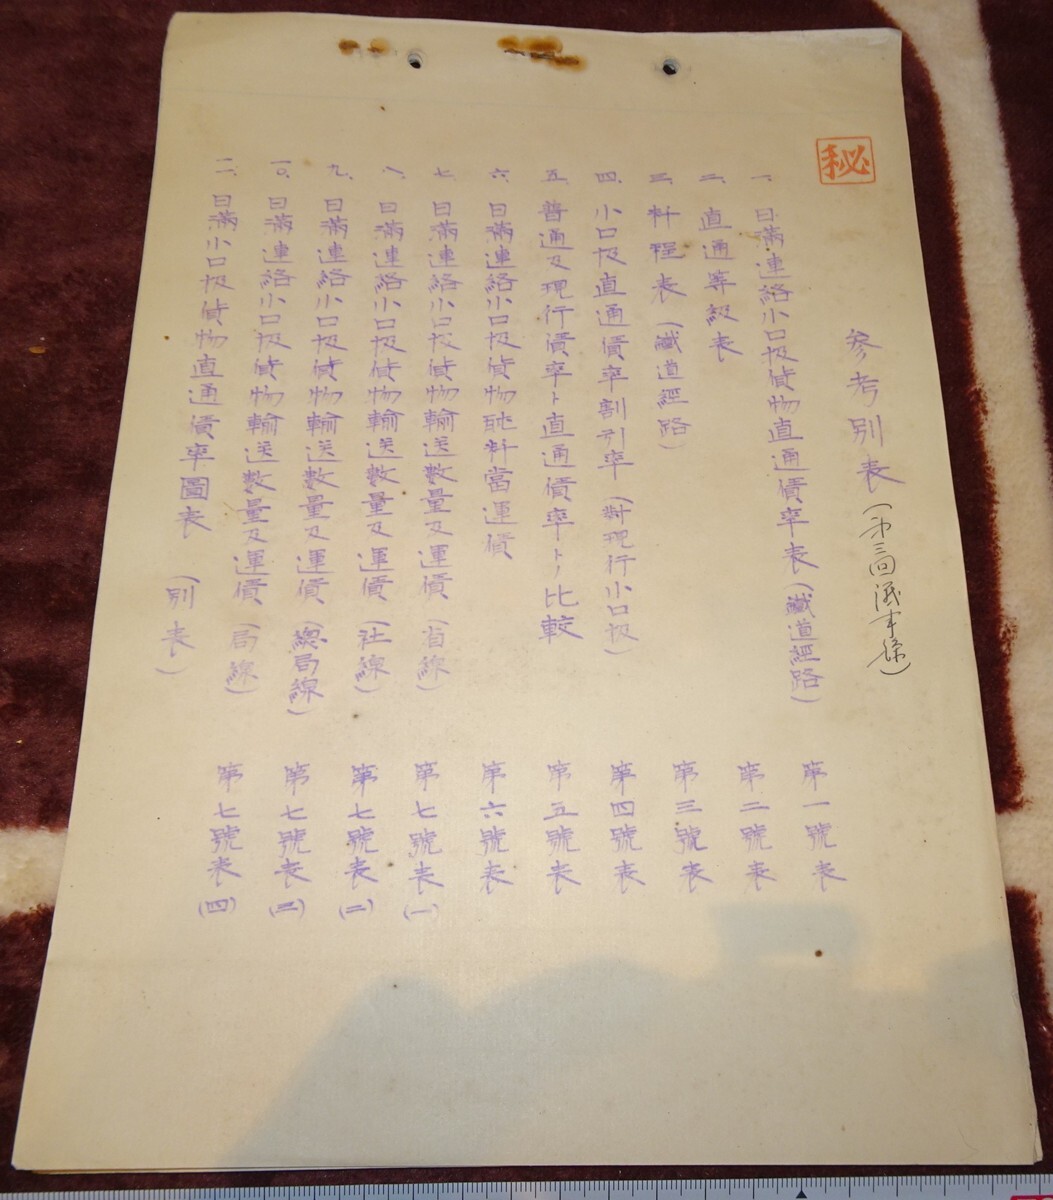 秘
参考別表（第三回議事録）
一、日満連絡小口扱貨物直通賃率表（鐵道経路） 第一號表
二、直通等級表 第二號表
三、料程表（鐵道経路） 第三號表
四、小口扱直通賃率割引率（對現行小口扱） 第四號表
五、普通及現行賃率ト直通賃率トノ比較 第五號表
六、日満連絡小口扱貨物瓩料當運賃 第六號表
七、日満連絡小口扱貨物輸送数量及運賃（省線） 第七號表（一）
八、日満連絡小口扱貨物輸送数量及運賃（社線） 第七號表（二）
九、日満連絡小口扱貨物輸送数量及運賃（總局線） 第七號表（三）
一〇、日満連絡小口扱貨物輸送数量及運賃（局線） 第七號表（四）
二、日満小口扱貨物直通賃率圖表（別表）